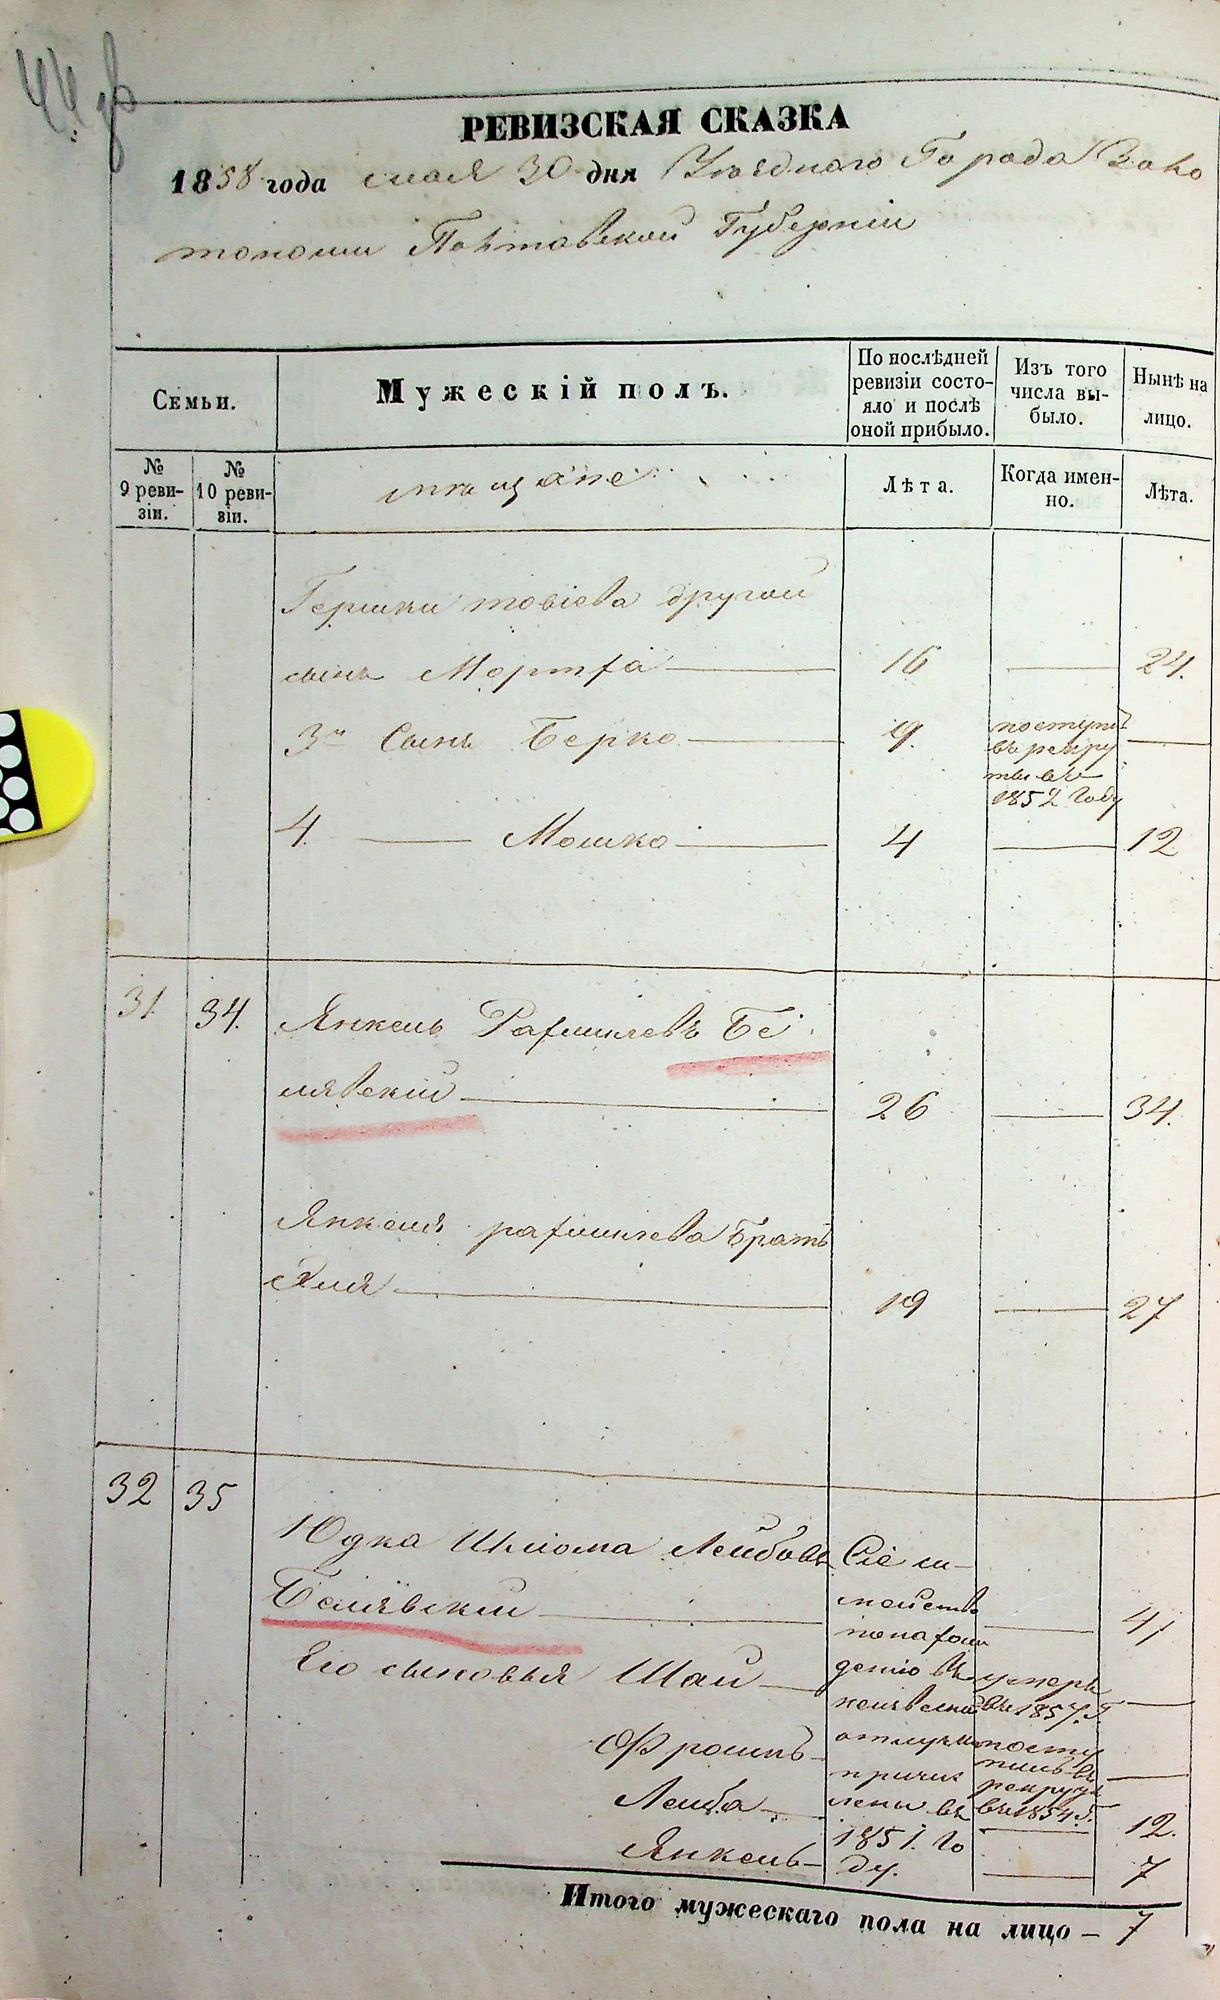 44 об
РЕВИЗСКАЯ СКАЗКА
1858 года мая 30 дня Уезднаго Города Золо
тоноши Полтавской Губерніи
Семьи.
Мужескій полъ.
По послѣдней ревизіи состояло и послѣ оной прибыло.
Изъ того числа выбыло.
Нынѣ на лицо.
№ 9 ревизіи.
№ 10 ревизіи.
мѣщане
Лѣта.
Когда именно.
Лѣта.
Гершки товіева другой
сынъ Мортха 16 — 24.
3й Сынъ Берко 9. поступ. въ рекруты въ 1852 году —
4. — Мошко 4 — 12
31 34. Янкель Рафаиловъ Бе
лявскій 26 — 34.
Янкеля братъ
19 — 27
32 35
Юдка Шліома Лейбовъ
Белявскій — 41
Сіе семейство по нахожденію въ неизвѣстной отлучки причислены въ 1851. году.
Его сыновья Шаи умеръ въ 1857. г. —
Фроимъ поступилъ въ рекруты въ 1854 г. —
Лейба — 12.
Янкель — 7
Итого мужескаго пола на лицо — 7